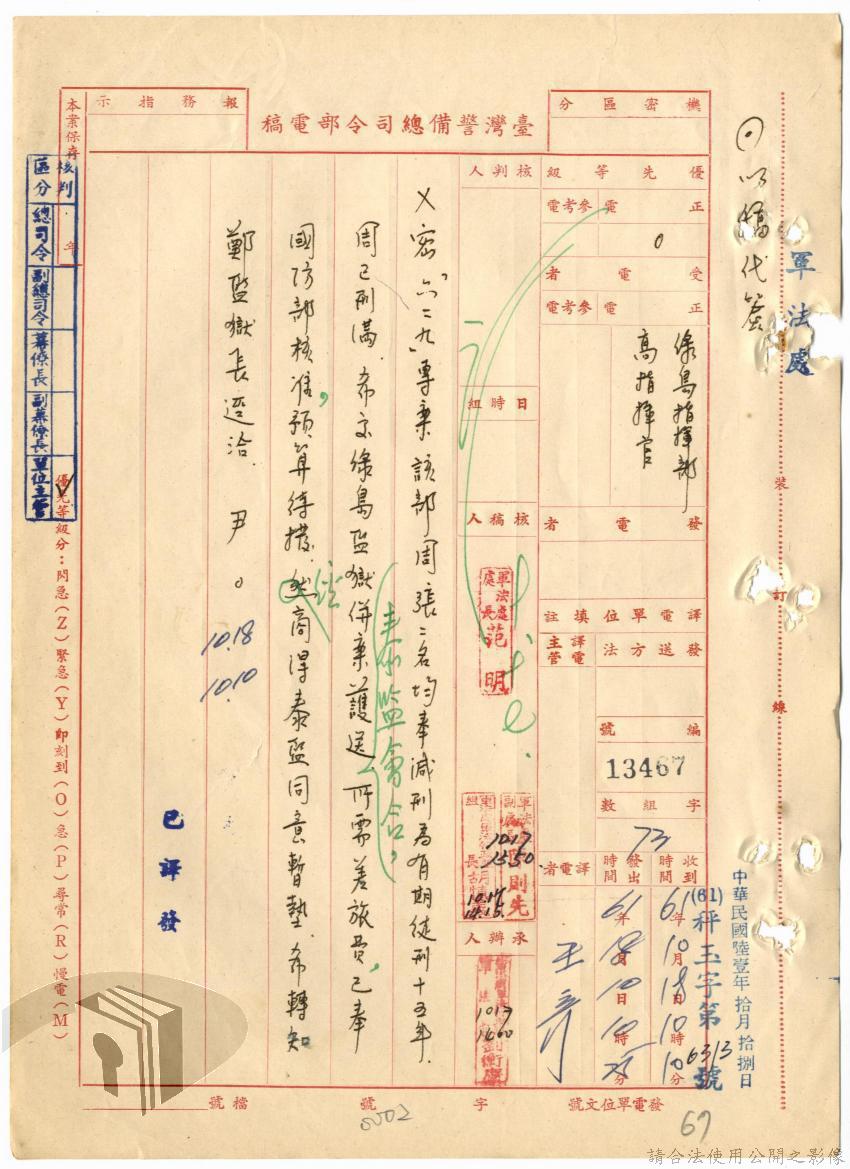 ⊙以稿代簽
軍法處
裝
訂
線
中華民國陸壹年拾月拾捌日
(61)秤玉字第6313號
機密區分
臺灣警備總司令部電稿
報務指示
優先等級
正電 參考電
0
受電者
正電 參考電
綠島指揮部
高指揮官
發電者
譯電單位填註
發送方法
譯電主管
編號
13467
字組數
73
收到時間
發出時間
譯電者
61年10月18日10時10分
61年
王彥
核判人
日時組
核稿人
軍法處處長范明
10.17
1550
承辦人
10.17
1400
密「六二九」專案該部周張二名均奉減刑為有期徒刑十五年.
周已刑滿.希交綠島監獄併案護送.所需差旅費,已奉
泰監會合,
國防部核准,預算待撥.
經商得泰監同意暫墊.希轉知
鄭監獄長逕洽.尹。
10.18
10.10
已譯發
本案保存 年
核判區分
總司令
副總司令
幕僚長
副幕僚長
單位主管
優先等級分:閃急(Z)緊急(Y)即刻到(O)急(P)尋常(R)慢電(M)
發電單位文號 字 號
檔號
0002
67
請合法使用公開之影像